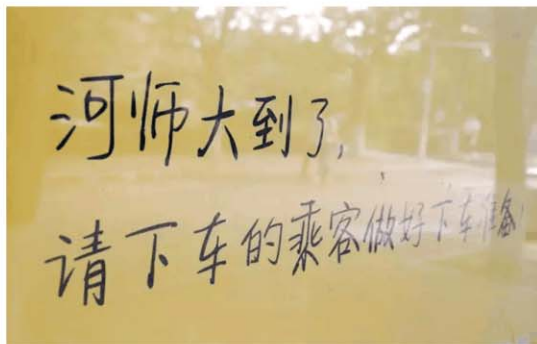 河师大到了,
请下车的乘客做好下车准备